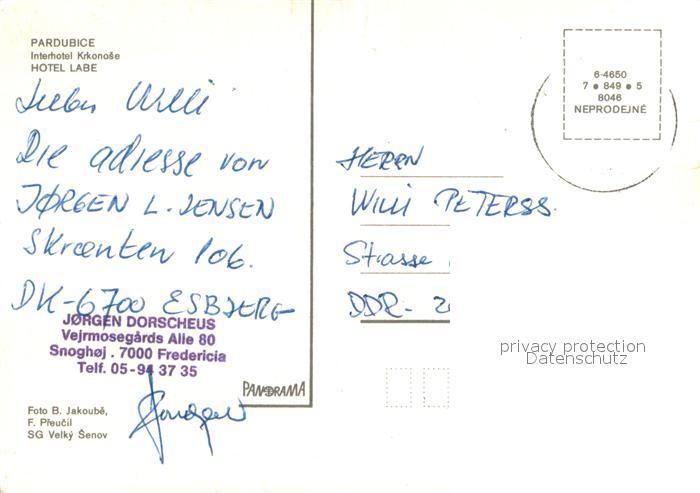 PARDUBICE
Interhotel Krkonoše
HOTEL LABE
Lieber Willi
Die adresse von
JØRGEN L. JENSEN
Skrænten 106.
DK-6700 ESBJERG
JØRGEN DORSCHEUS
Vejrmosegårds Alle 80
Snoghøj . 7000 Fredericia
Telf. 05-94 37 35
Jørgen
PANORAMA
Foto B. Jakoubě,
F. Přeučil
SG Velký Šenov
6-4650
7 • 849 • 5
8046
NEPRODEJNÉ
HERRN
Willi PETERSS.
Strasse
DDR- 2
privacy protection
Datenschutz